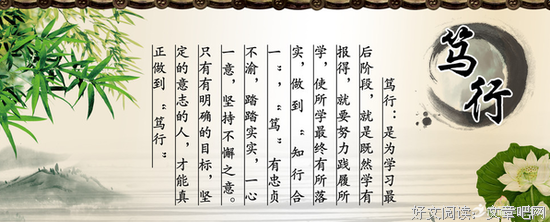 笃行
笃行：是为学习最
后阶段，就是既然学有
报得，就要努力践履所
学，使所学最终有所落
实，做到“知行合
一”，“笃”有忠贞
不渝，踏踏实实，一心
一意，坚持不懈之意。
只有有明确的目标，坚
定的意志的人，才能真
正做到“笃行”
好文阅读：文章吧网